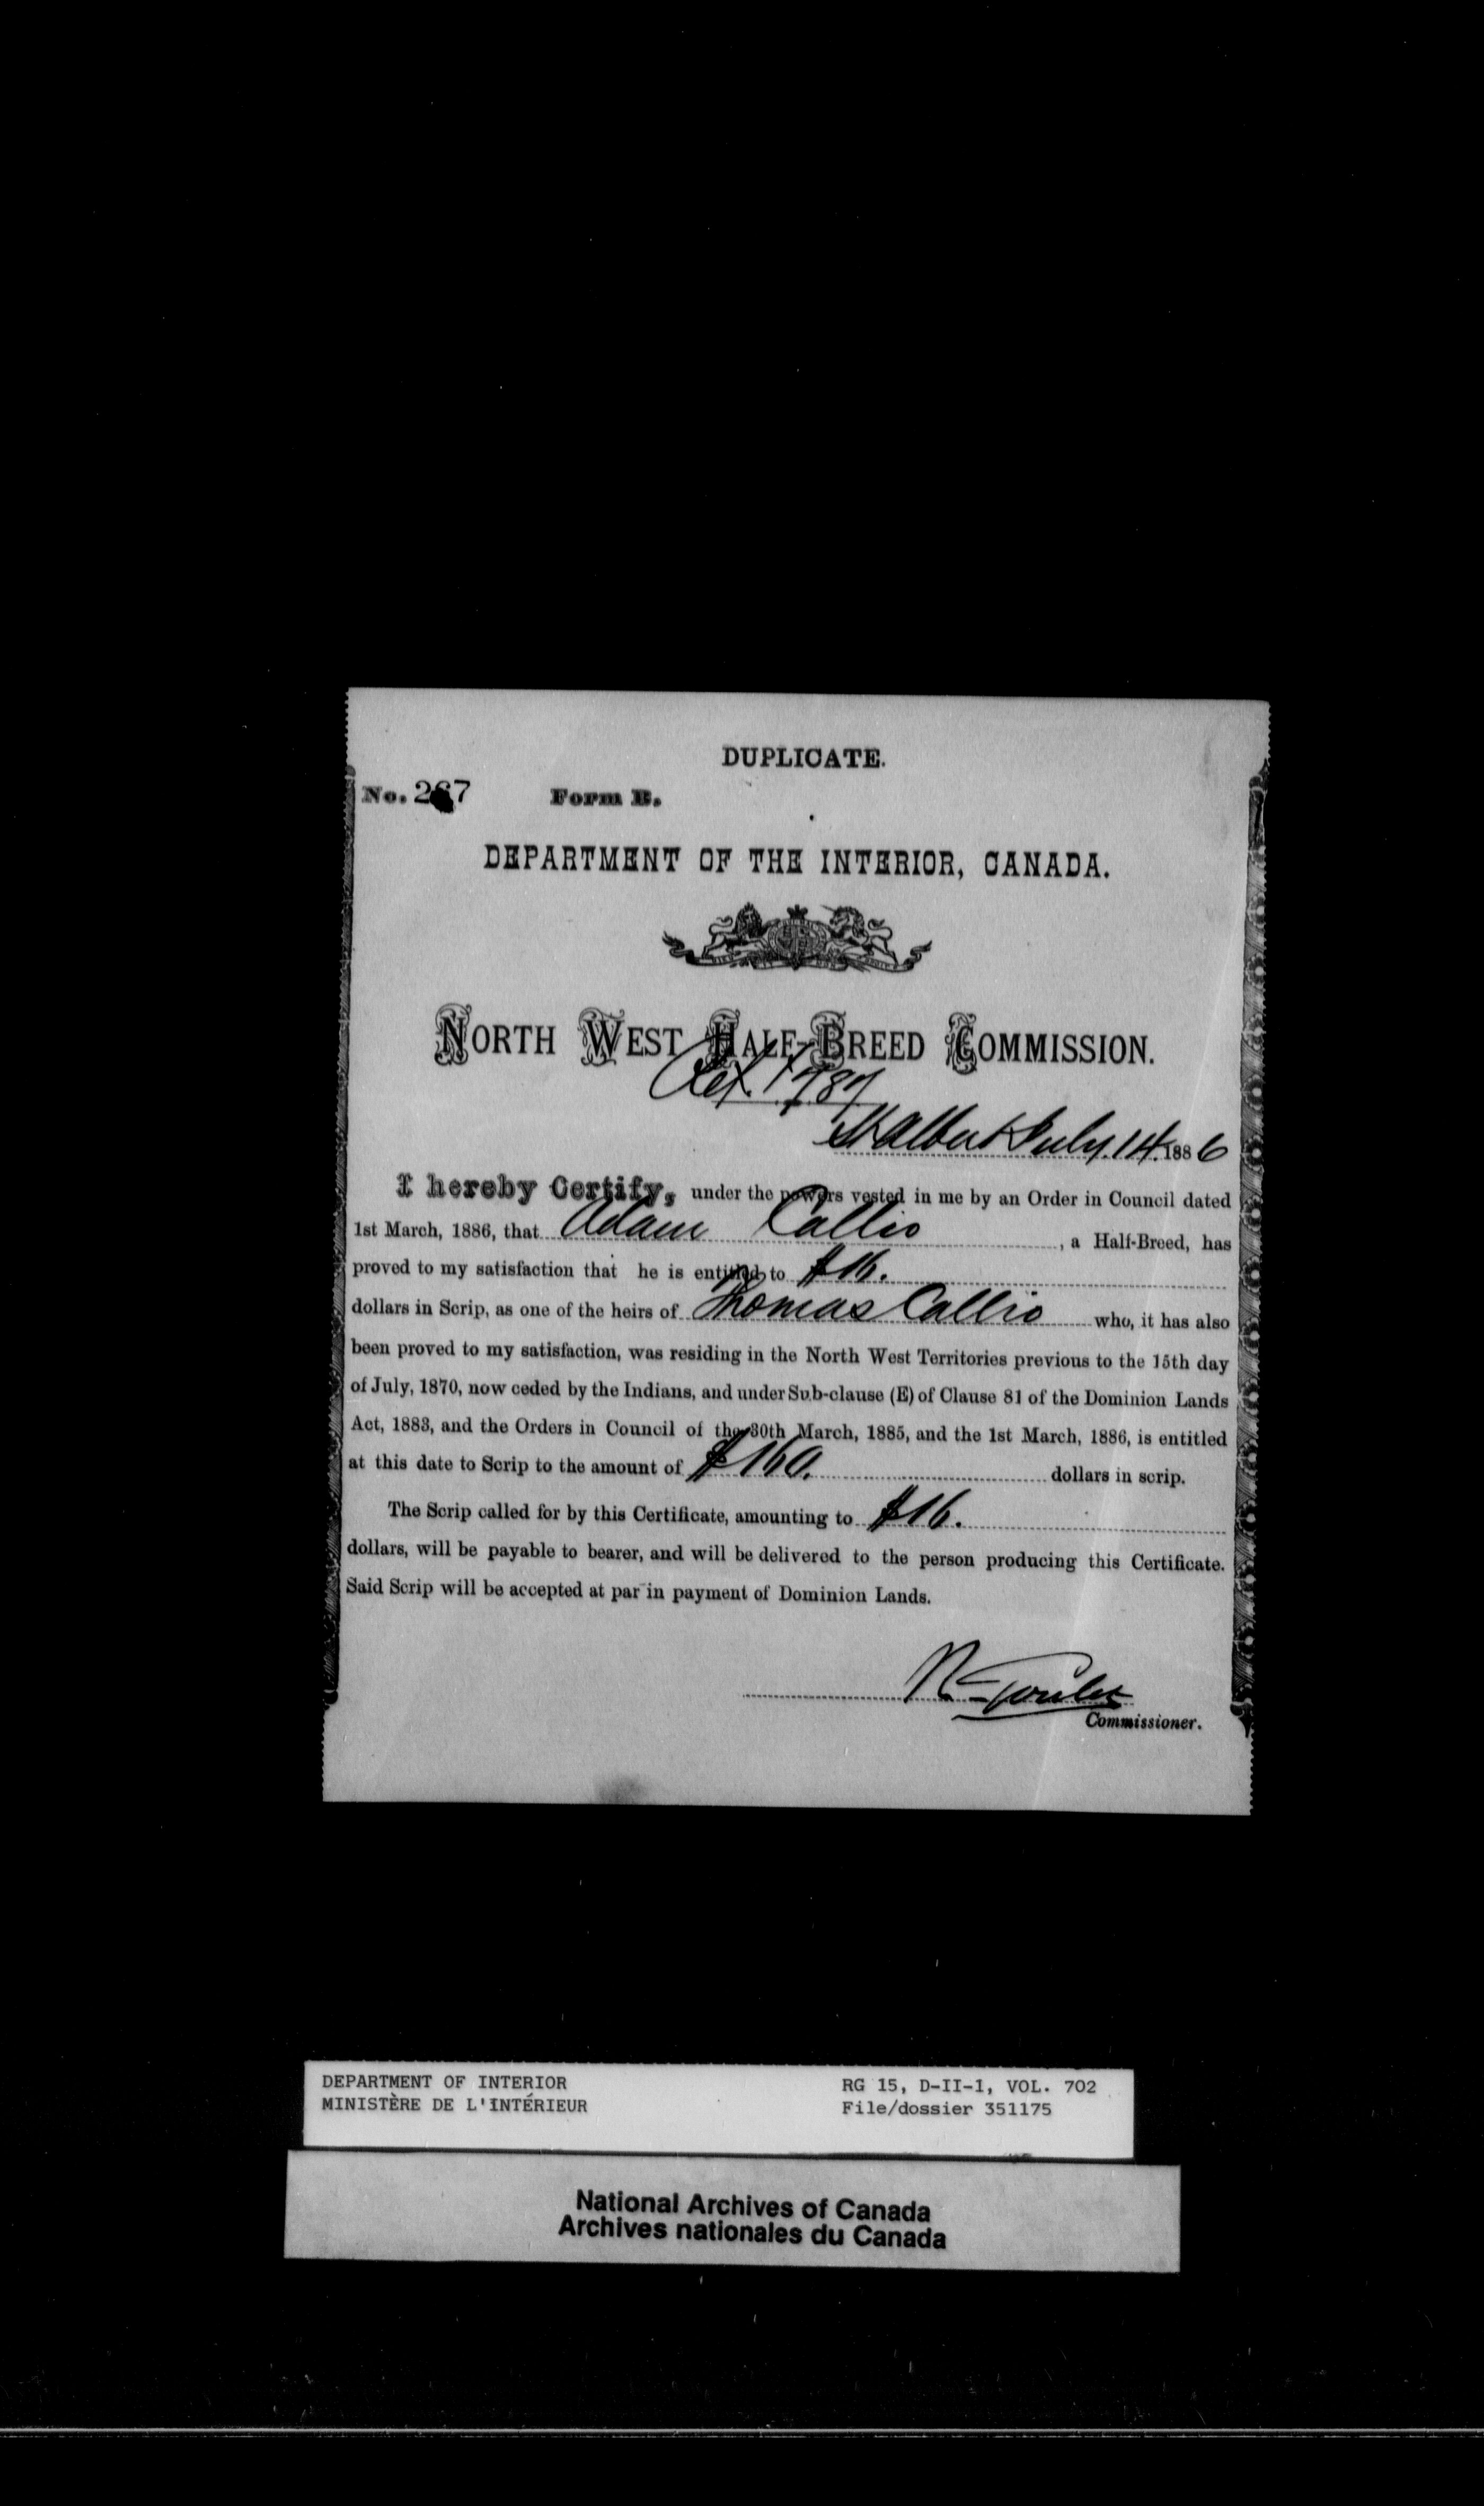 DUPLICATE.
No. 267 Form B.
DEPARTMENT OF THE INTERIOR, CANADA.
NORTH WEST HALF-BREED COMMISSION.
St Albert July 14. 1886
I hereby Certify, under the powers vested in me by an Order in Council dated
1st March, 1886, that Adam Callio, a Half-Breed, has
proved to my satisfaction that he is entitled to $16.
dollars in Scrip, as one of the heirs of Thomas Callio who, it has also
been proved to my satisfaction, was residing in the North West Territories previous to the 15th day
of July, 1870, now ceded by the Indians, and under Sub-clause (E) of Clause 81 of the Dominion Lands
Act, 1883, and the Orders in Council of the 30th March, 1885, and the 1st March, 1886, is entitled
at this date to Scrip to the amount of $160. dollars in scrip.
The Scrip called for by this Certificate, amounting to $16.
dollars, will be payable to bearer, and will be delivered to the person producing this Certificate.
Said Scrip will be accepted at par in payment of Dominion Lands.
R Goulet
Commissioner.
DEPARTMENT OF INTERIOR
MINISTÈRE DE L'INTÉRIEUR
RG 15, D-II-1, VOL. 702
File/dossier 351175
National Archives of Canada
Archives nationales du Canada